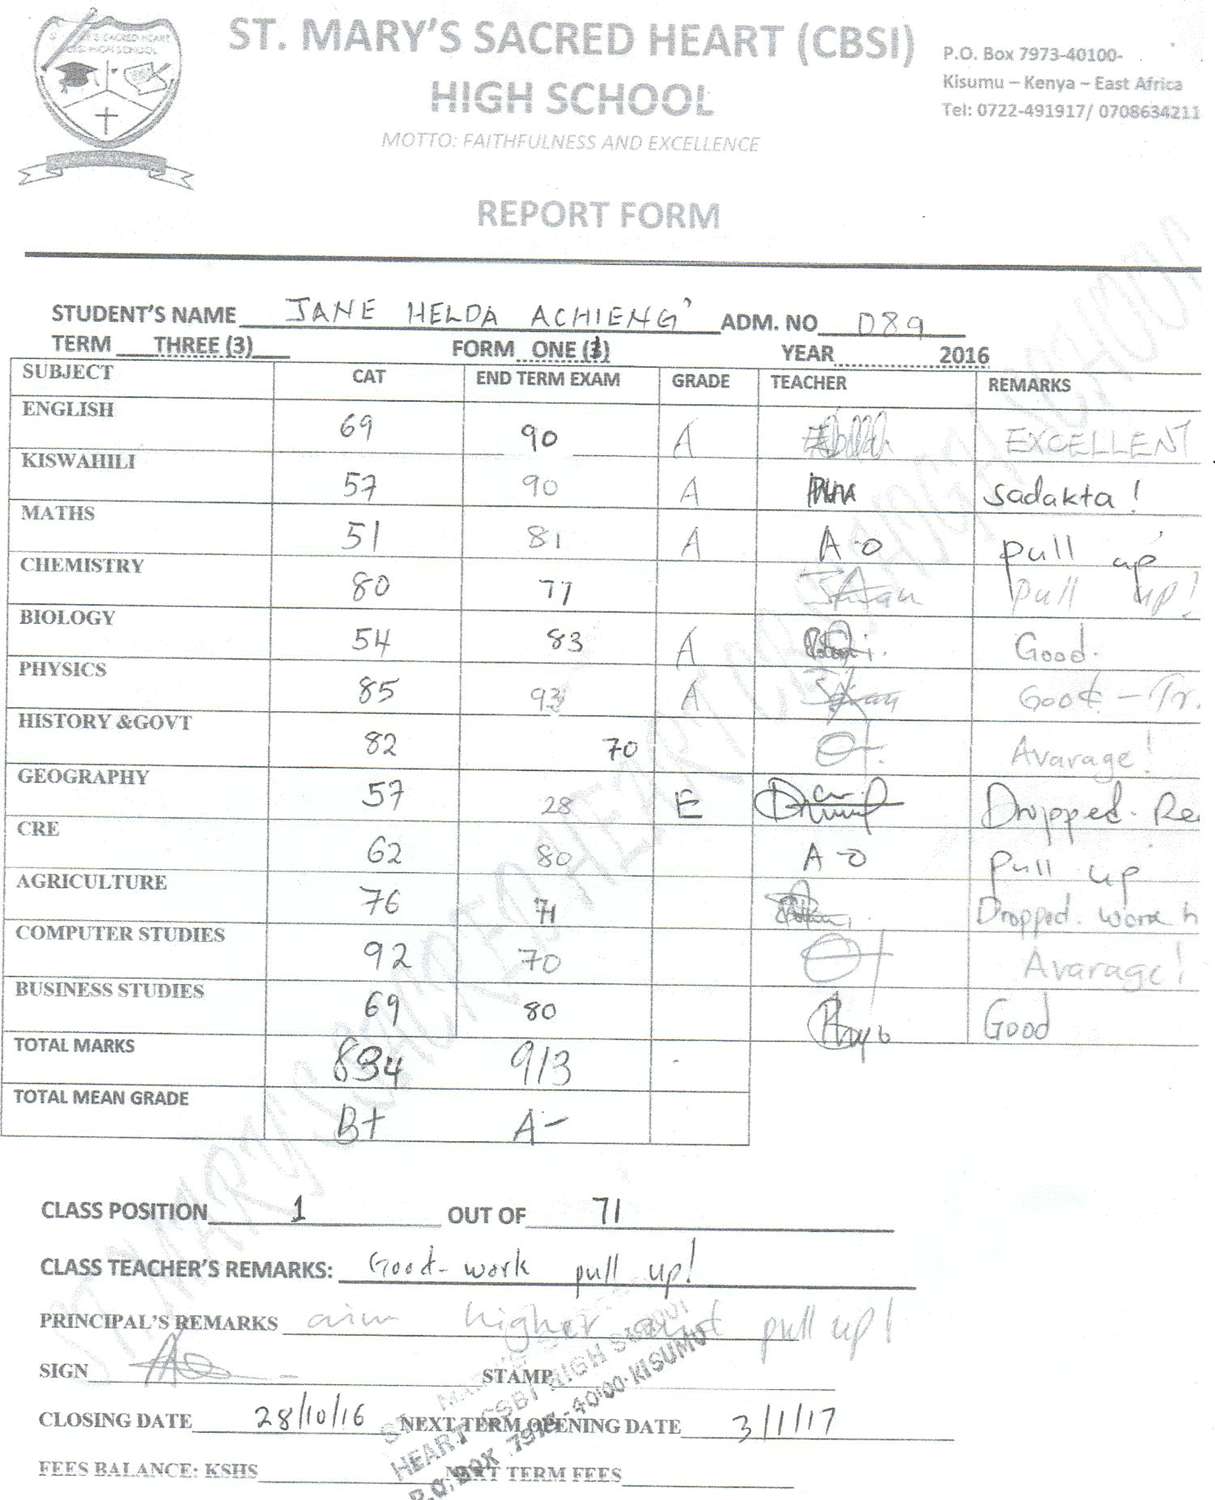 ST. MARY'S SACRED HEART (CBSI)
HIGH SCHOOL
MOTTO: FAITHFULNESS AND EXCELLENCE
P.O. Box 7973-40100-
Kisumu – Kenya – East Africa
Tel: 0722-491917/ 0708634211
REPORT FORM
STUDENT'S NAME JANE HELDA ACHIENG' ADM. NO D89
TERM THREE (3) FORM ONE (1) YEAR 2016
SUBJECT CAT END TERM EXAM GRADE TEACHER REMARKS
ENGLISH 69 90 A EXCELLENT
KISWAHILI 57 90 A Sadakta!
MATHS 51 81 A A-O pull up
CHEMISTRY 80 77 pull up!
BIOLOGY 54 83 A Good.
PHYSICS 85 93 A Good - Tr.
HISTORY &GOVT 82 70 Avarage!
GEOGRAPHY 57 28 E Dropped. Re
CRE 62 80 A-O Pull up
AGRICULTURE 76 71 Dropped. work h
COMPUTER STUDIES 92 70 Avarage!
BUSINESS STUDIES 69 80 Good
TOTAL MARKS 834 913 -
TOTAL MEAN GRADE B+ A-
CLASS POSITION 1 OUT OF 71
CLASS TEACHER'S REMARKS: Good-work pull up!
PRINCIPAL'S REMARKS aim higher and pull up!
SIGN STAMP
CLOSING DATE 28/10/16 NEXT TERM OPENING DATE 3/1/17
FEES BALANCE: KSHS NEXT TERM FEES
ST. MARY'S SACRED
HEART CSBI HIGH SCHOOL
P.O. BOX 7973-40100-KISUMU
ST. MARY SACRED HEART CBSI HIGH SCHOOL